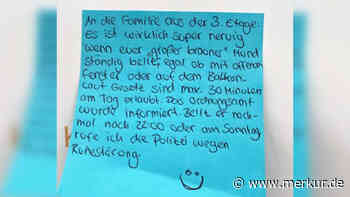 An die Familie aus der 3. Etage:
Es ist wirklich super nervig
wenn euer „großer brauner" Hund
ständig bellt, egal ob mit offenem
Fenster oder auf dem Balkon.
Laut Gesetz sind max. 30 Minuten
am Tag erlaubt. Das Ordnungsamt
wurde informiert. Bellt er noch-
mal nach 22:00 oder am Sonntag
rufe ich die Polizei wegen
Ruhestörung.
© www.merkur.de